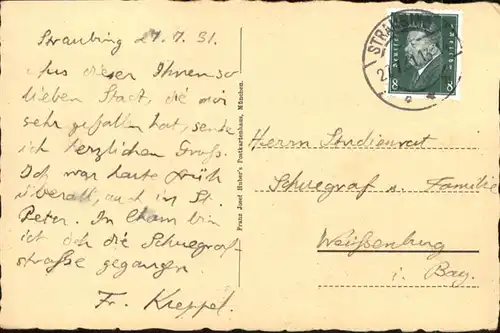 Straubing 27.7.31.
Aus dieser Ihnen so
lieben Stadt, die mir
sehr gefallen hat, sende
ich herzlichen Gruß.
Ich war heute früh
überall, auch in St.
Peter. In Cham bin
ich die Schuegraf-
straße gegangen.
Fr. Kreppel.
Franz Josef Huber's Postkartenhaus, München.
STRAUBING
Deutsches Reich
8 8
Herrn Studienrat
Schuegraf u. Familie
Weißenburg
i. Bay.